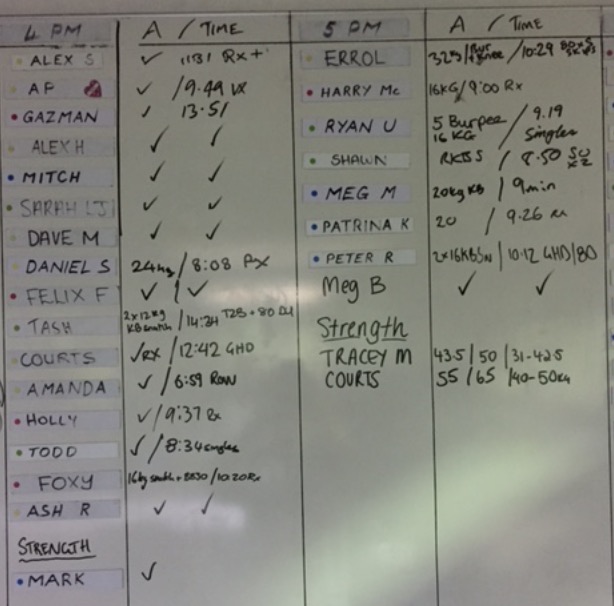 4 PM A / TIME
ALEX S ✓ 1131 Rx+
AP ✓ /9.49
GAZMAN ✓ 13.51
ALEX H ✓ ✓
MITCH ✓ ✓
SARAH LJ ✓ ✓
DAVE M ✓ ✓
DANIEL S 24kg / 8:08 RX
FELIX F ✓ / ✓
TASH 2x12kg KB snatch / 14:24 T2B + 80 DU
COURTS ✓RX / 12:42 GHD
AMANDA ✓ / 6:59 Row
HOLLY ✓ / 9:37 Rx
TODD ✓ / 8:34 singles
FOXY 16kg / 10.20 Rx
ASH R ✓ ✓
STRENGTH
MARK ✓
5 PM A / TIME
ERROL 325 / 10:29
HARRY Mc 16KG / 9:00 Rx
RYAN U 5 Burpee 16 KG / 9.19 Singles
SHAWN / 8.50
MEG M 20kg KB / 9min
PATRINA K 20 / 9.26
PETER R 2x16KBSN / 10.12 GHD/80
Meg B ✓ ✓
Strength
TRACEY M 43.5 / 50 / 31-42.5
COURTS 55 / 65 / 40-50kg